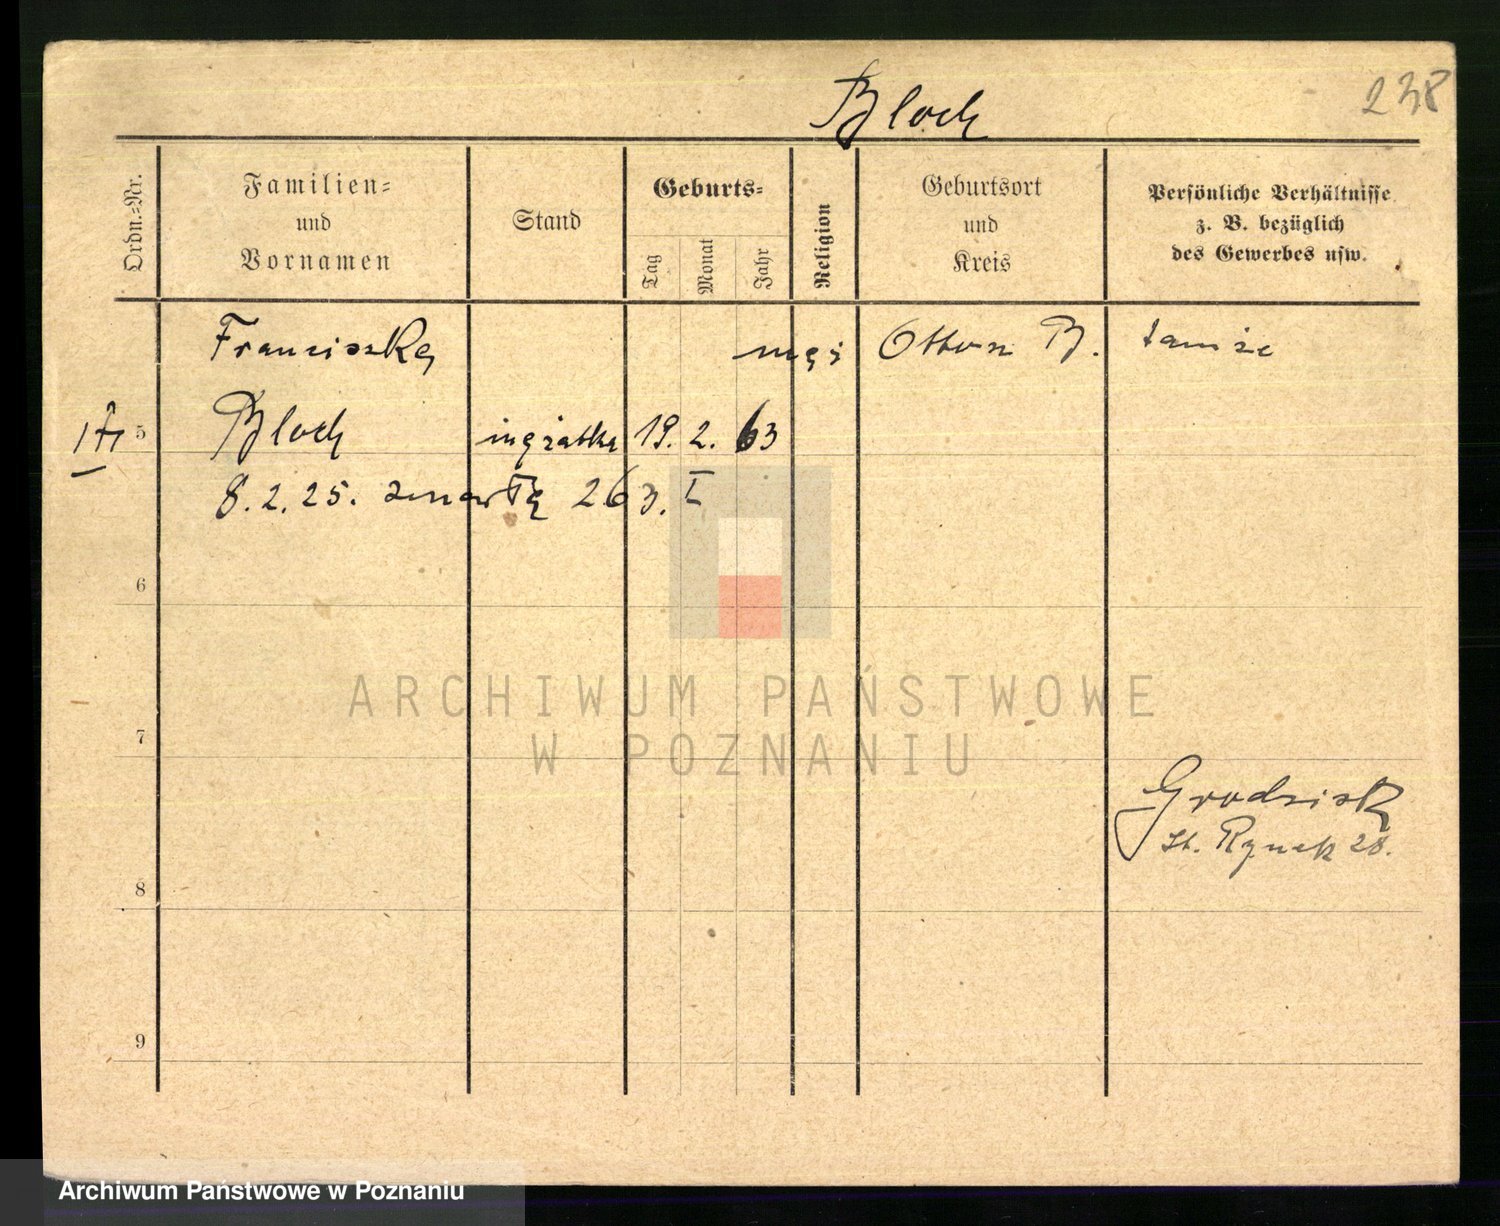 Bloch
238
Ordn.-Nr.
Familien-
und
Vornamen
Stand
Geburts-
Tag
Monat
Jahr
Religion
Geburtsort
und
Kreis
Persönliche Verhältnisse
z. B. bezüglich
des Gewerbes usw.
Franciszka mąż Otton B. tamże
5 Bloch mężatka 19. 2. 63
8. 2. 25. zmarłą I
6
7
8
9
Grodzisk
St. Rynek 28.
ARCHIWUM PAŃSTWOWE
W POZNANIU
Archiwum Państwowe w Poznaniu